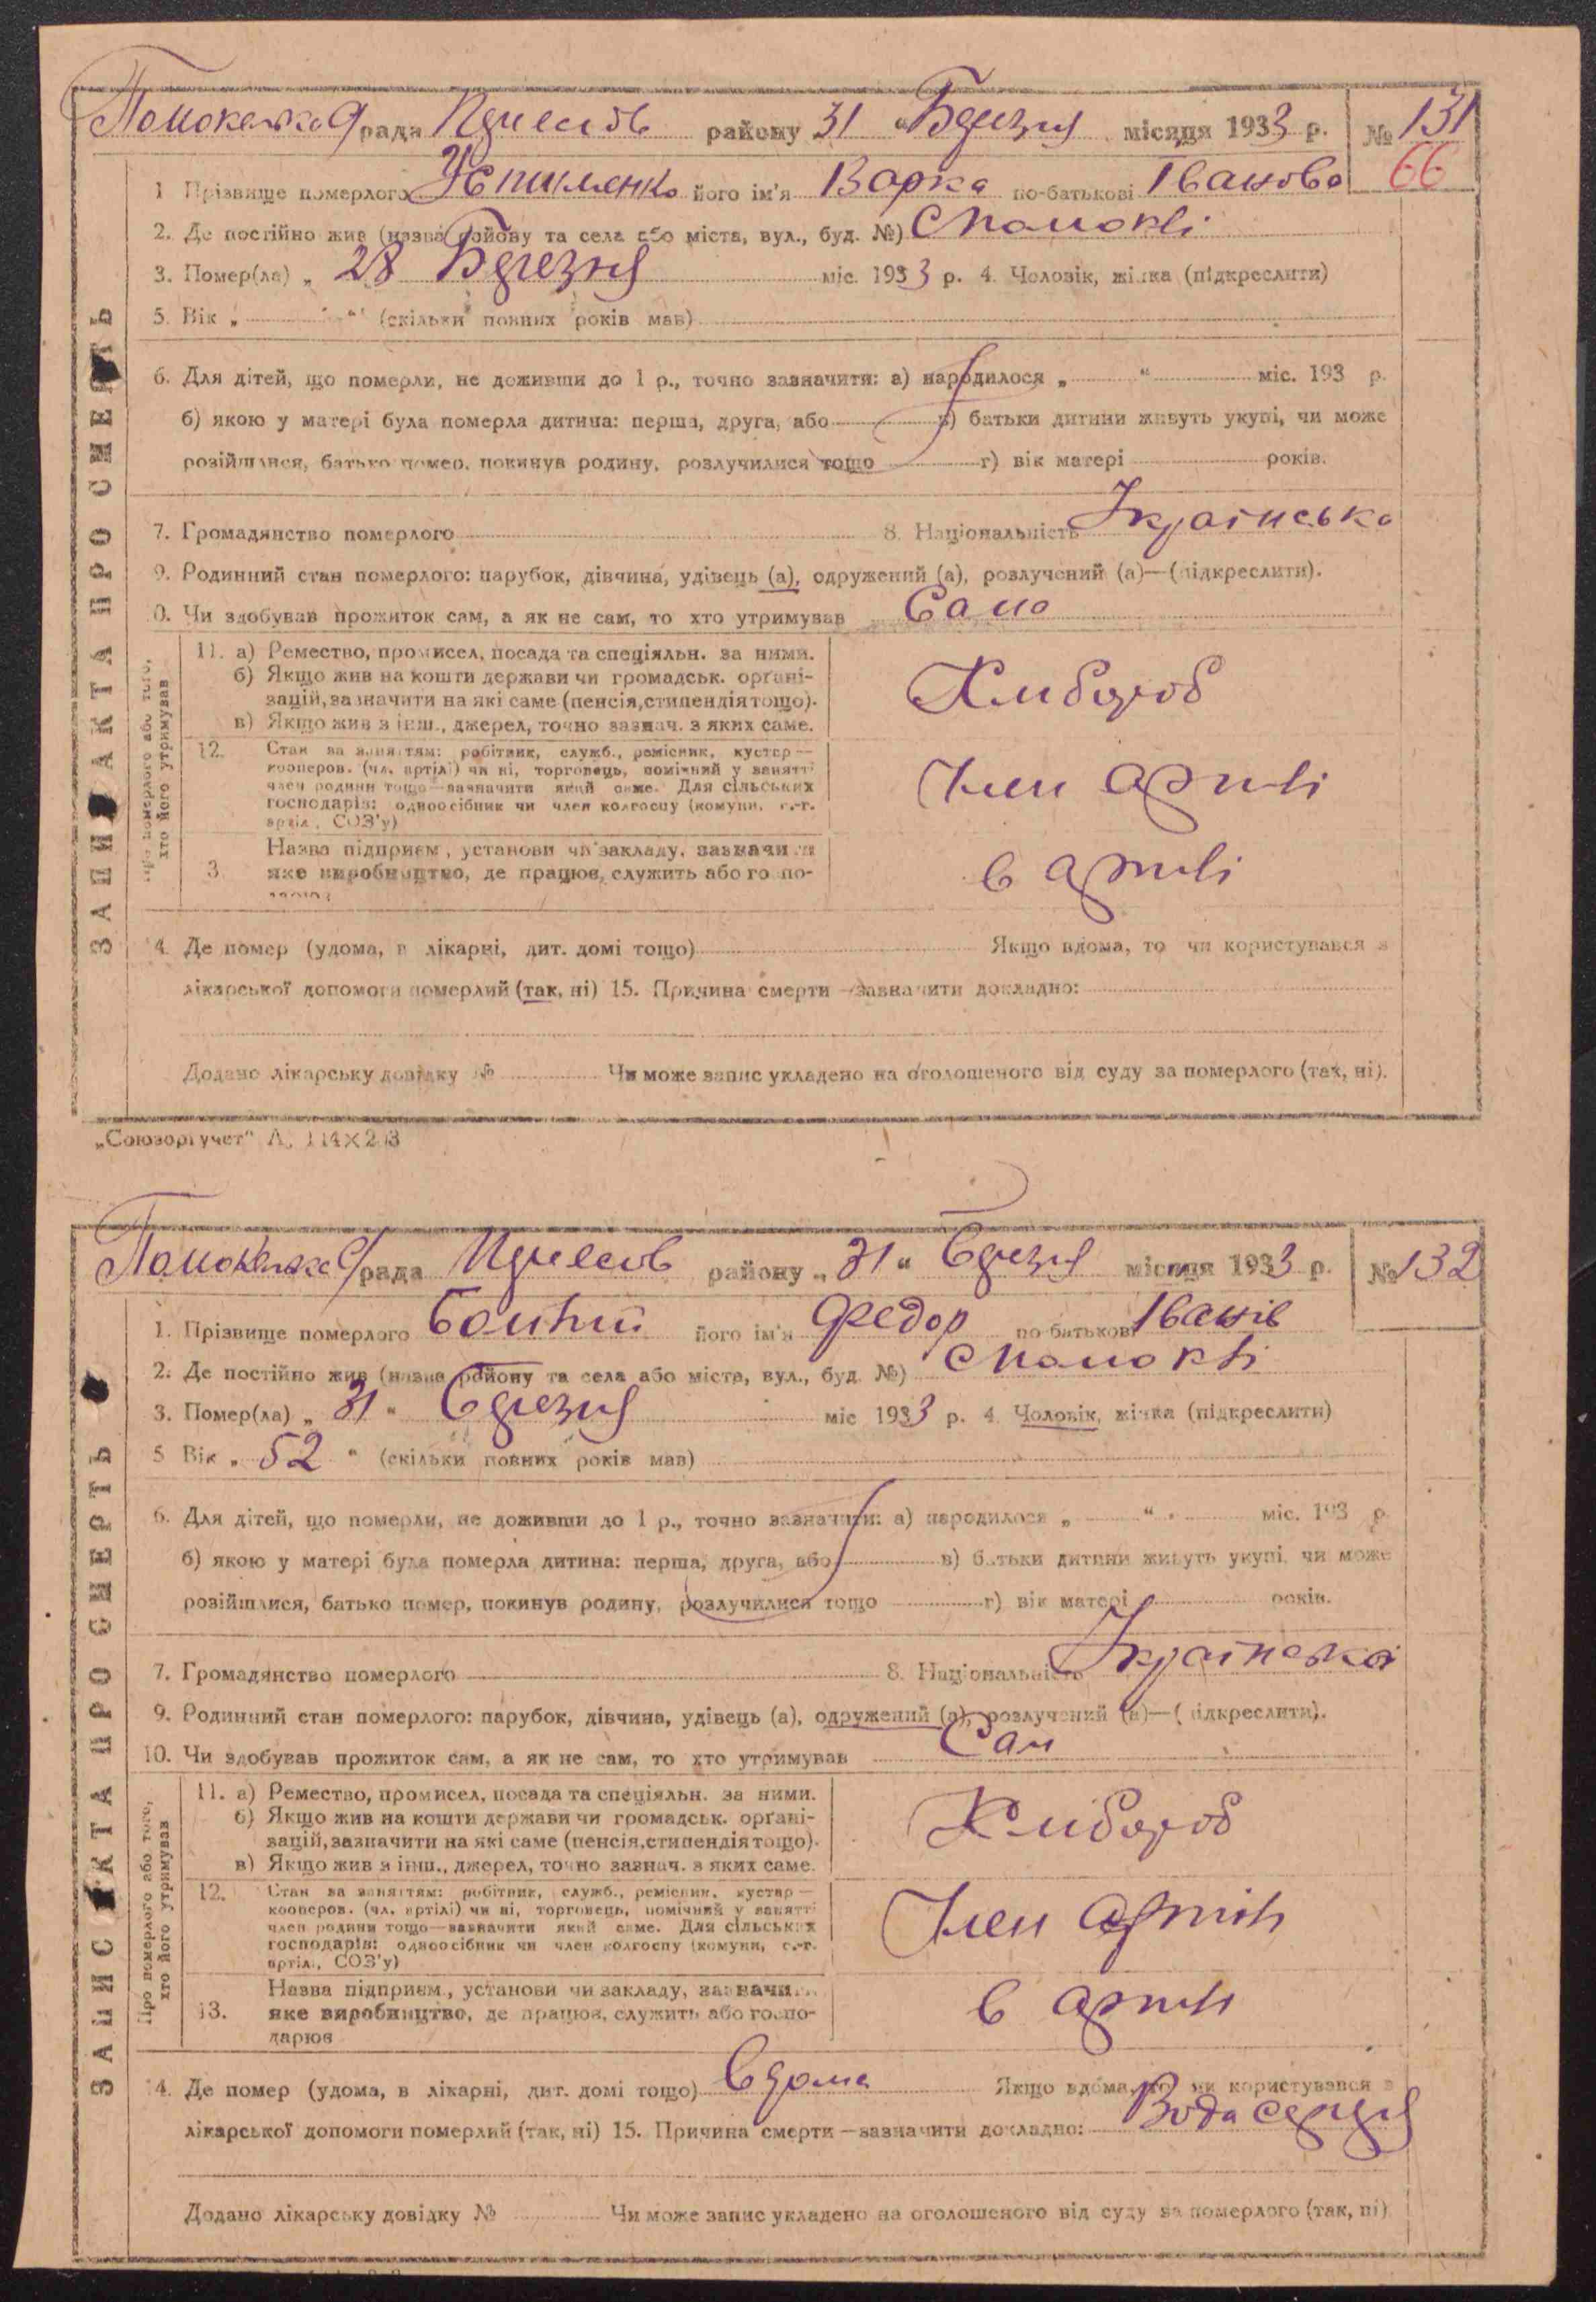 рада району 31 „Березня місяця 1933 р. № 131
66
1 Прізвище померлого його ім'я Варка по-батькові Іванова
2. Де постійно жив (назва району та села або міста, вул., буд. №)
3. Помер(ла) „ 28 Березня міс. 1933 р. 4. Чоловік, жінка (підкреслити)
5. Вік „ “ (скільки повних років мав)
6. Для дітей, що померли, не доживши до 1 р., точно зазначити: а) народилося „ “ міс. 193 р.
б) якою у матері була померла дитина: перша, друга, або в) батьки дитини живуть укупі, чи може
розійшлися, батько помер, покинув родину, розлучилися тощо г) вік матері років.
7. Громадянство померлого 8. Національність Українська
9. Родинний стан померлого: парубок, дівчина, удівець (а), одружений (а), розлучений (а)—(підкреслити).
0. Чи здобував прожиток сам, а як не сам, то хто утримував Сама
11. а) Ремество, промисел, посада та спеціяльн. за ними.
б) Якщо жив на кошти держави чи громадськ. орґані-
зацій, зазначити на які саме (пенсія, стипендія тощо).
в) Якщо жив з інш., джерел, точно зазнач. з яких саме.
Хлибороб
12. Стан за заняттям: робітник, служб., ремісник, кустар —
кооперов. (чл. артілі) чи ні, торговець, помічний у занятті
член родини тощо—зазначити який саме. Для сільських
господарів: одноосібник чи член колгоспу (комуни, с.-г.
артіл., СОЗ'у)
Член артилі
Назва підприєм., установи чи закладу, зазначити
3. яке виробництво, де працює, служить або госпо-
дарює
в артилі
4. Де помер (удома, в лікарні, дит. домі тощо) Якщо вдома, то чи користувався з
лікарської допомоги померлий (так, ні) 15. Причина смерти—зазначити докладно:
Додано лікарську довідку № Чи може запис укладено на оголошеного від суду за померлого (так, ні).
ЗАПИС АКТА ПРО СМЕРТЬ
померлого або того,
хто його утримував
„Союзоргучет“
рада району „ 31 “ Березня місяця 1933 р. № 132
1. Прізвище померлого його ім'я Федор по-батькові Іванів
2. Де постійно жив (назва району та села або міста, вул., буд. №)
3. Помер(ла) „ 31 “ Березня міс 1933 р. 4. Чоловік, жінка (підкреслити)
5 Вік „ 52 “ (скільки повних років мав)
6. Для дітей, що померли, не доживши до 1 р., точно зазначити: а) народилося „ “ міс. 193 р.
б) якою у матері була померла дитина: перша, друга, або в) батьки дитини живуть укупі, чи може
розійшлися, батько помер, покинув родину, розлучилися тощо г) вік матері років.
7. Громадянство померлого 8. Національність Українська
9. Родинний стан померлого: парубок, дівчина, удівець (а), одружений (а), розлучений (а)—(підкреслити).
10. Чи здобував прожиток сам, а як не сам, то хто утримував Сам
11. а) Ремество, промисел, посада та спеціяльн. за ними.
б) Якщо жив на кошти держави чи громадськ. орґані-
зацій, зазначити на які саме (пенсія, стипендія тощо).
в) Якщо жив з інш., джерел, точно зазнач. з яких саме.
Хлибороб
12. Стан за заняттям: робітник, служб., ремісник, кустар —
кооперов. (чл. артілі) чи ні, торговець, помічний у занятті
член родини тощо—зазначити який саме. Для сільських
господарів: одноосібник чи член колгоспу (комуни, с.-г.
артіл., СОЗ'у)
Член артилі
Назва підприєм., установи чи закладу, зазначи
13. яке виробництво, де працює, служить або госпо-
дарює
в артилі
4. Де помер (удома, в лікарні, дит. домі тощо) Вдома Якщо вдома, то чи користувався з
лікарської допомоги померлий (так, ні) 15. Причина смерти—зазначити докладно: серця
Додано лікарську довідку № Чи може запис укладено на оголошеного від суду за померлого (так, ні)
ЗАПИС АКТА ПРО СМЕРТЬ
Про померлого або того,
хто його утримував